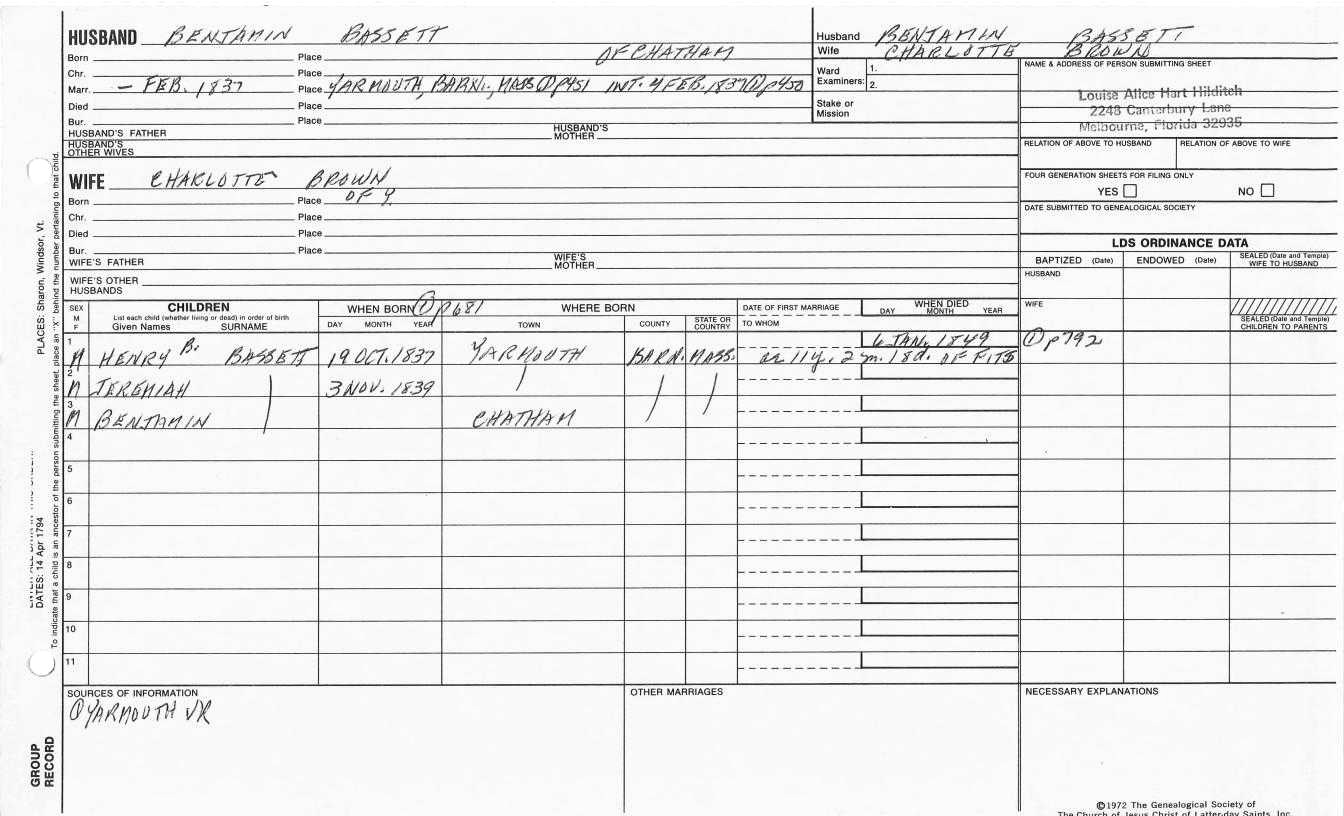 HUSBAND BENJAMIN BASSETT
Born Place OF CHATHAM
Chr. Place
Marr. — FEB. 1837 Place YARMOUTH, BARN., MASS ① p451 INT. 4 FEB. 1837 ① p450
Died Place
Bur. Place
HUSBAND'S FATHER HUSBAND'S MOTHER
HUSBAND'S OTHER WIVES
Husband BENJAMIN BASSETT
Wife CHARLOTTE BROWN
Ward Examiners: 1.
2.
Stake or Mission
NAME & ADDRESS OF PERSON SUBMITTING SHEET
Louise Alice Hart Hilditch
2248 Canterbury Lane
Melbourne, Florida 32935
RELATION OF ABOVE TO HUSBAND RELATION OF ABOVE TO WIFE
FOUR GENERATION SHEETS FOR FILING ONLY
YES NO
DATE SUBMITTED TO GENEALOGICAL SOCIETY
WIFE CHARLOTTE BROWN
Born Place OF Y.
Chr. Place
Died Place
Bur. Place
WIFE'S FATHER WIFE'S MOTHER
WIFE'S OTHER HUSBANDS
LDS ORDINANCE DATA
BAPTIZED (Date) ENDOWED (Date) SEALED (Date and Temple) WIFE TO HUSBAND
HUSBAND
WIFE
SEALED (Date and Temple) CHILDREN TO PARENTS
SEX M F
CHILDREN
List each child (whether living or dead) in order of birth
Given Names SURNAME
WHEN BORN ① p681
DAY MONTH YEAR
WHERE BORN
TOWN COUNTY STATE OR COUNTRY
DATE OF FIRST MARRIAGE
TO WHOM
WHEN DIED
DAY MONTH YEAR
1 M HENRY B. BASSETT 19 OCT. 1837 YARMOUTH BARN. MASS. 6 JAN. 1849 ① p792
ae 11y. 2m. 18d. OF FITS
2 M JEREMIAH 3 NOV. 1839
3 M BENJAMIN CHATHAM
4
5
6
7
8
9
10
11
SOURCES OF INFORMATION
① YARMOUTH VR
OTHER MARRIAGES
NECESSARY EXPLANATIONS
©1972 The Genealogical Society of
The Church of Jesus Christ of Latter-day Saints, Inc.
PLACES: Sharon, Windsor, Vt.
DATES: 14 Apr 1794
To indicate that a child is an ancestor of the person submitting the sheet, place an "X" behind the number pertaining to that child.
GROUP
RECORD